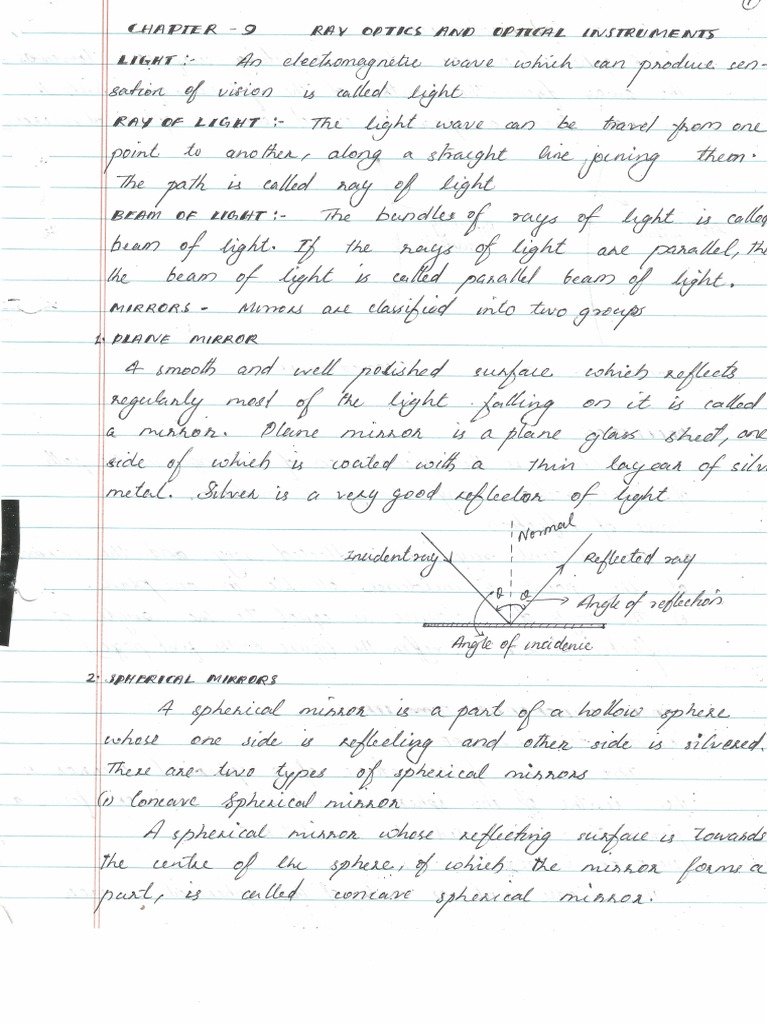 ①
CHAPTER - 9 RAY OPTICS AND OPTICAL INSTRUMENTS
LIGHT :- An electromagnetic wave which can produce sen-
sation of vision is called light
RAY OF LIGHT :- The light wave can be travel from one
point to another, along a straight line joining them.
The path is called ray of light
BEAM OF LIGHT :- The bundles of rays of light is called
beam of light. If the rays of light are parallel, the
the beam of light is called parallel beam of light.
MIRRORS - Mirrors are classified into two groups
1. PLANE MIRROR
A smooth and well polished surface which reflects
regularly most of the light falling on it is called
a mirror. Plane mirror is a plane glass sheet, one
side of which is coated with a thin layear of silv
metal. Silver is a very good reflector of light
Normal
Incident ray
Reflected ray
θ θ
Angle of reflection
Angle of incidenie
2. SPHERICAL MIRRORS
A spherical mirror is a part of a hollow sphere
whose one side is reflecting and other side is silvered.
There are two types of spherical mirrors
(1) Concave Spherical mirror
A spherical mirror whose reflecting surface is towards
the centre of the sphere, of which the mirror forms a
part, is called concave spherical mirror.